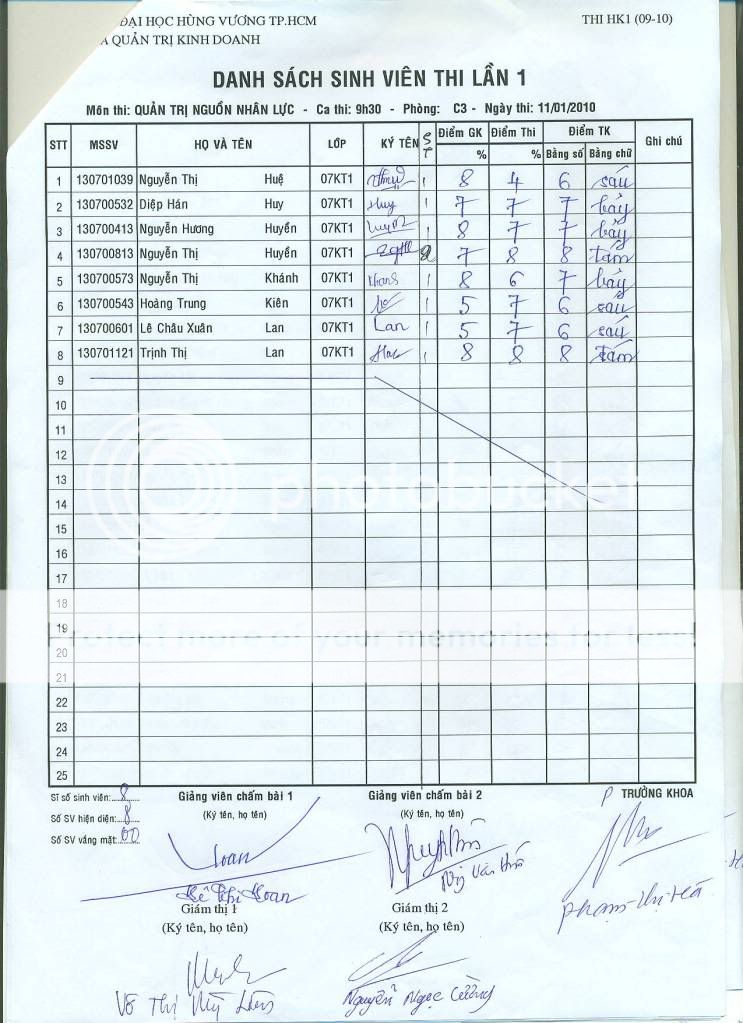 ĐẠI HỌC HÙNG VƯƠNG TP.HCM THI HK1 (09-10)
A QUẢN TRỊ KINH DOANH
DANH SÁCH SINH VIÊN THI LẦN 1
Môn thi: QUẢN TRỊ NGUỒN NHÂN LỰC - Ca thi: 9h30 - Phòng: C3 - Ngày thi: 11/01/2010
STT MSSV HỌ VÀ TÊN LỚP KÝ TÊN S T Điểm GK % Điểm Thi % Điểm TK Ghi chú
Bằng số Bằng chữ
1 130701039 Nguyễn Thị Huệ 07KT1 1 8 4 6 sáu
2 130700532 Diệp Hán Huy 07KT1 Huy 1 7 7 7 bảy
3 130700413 Nguyễn Hương Huyền 07KT1 1 8 7 7 bảy
4 130700813 Nguyễn Thị Huyền 07KT1 2 7 8 8 tám
5 130700573 Nguyễn Thị Khánh 07KT1 1 8 6 7 bảy
6 130700543 Hoàng Trung Kiên 07KT1 1 5 7 6 sáu
7 130700601 Lê Châu Xuân Lan 07KT1 Lan 1 5 7 6 sáu
8 130701121 Trịnh Thị Lan 07KT1 1 8 8 8 tám
9
10
11
12
13
14
15
16
17
18
19
20
21
22
23
24
25
photobucket
Protect more of your memories for less!
Sĩ số sinh viên: 8 Giảng viên chấm bài 1 Giảng viên chấm bài 2 P TRƯỞNG KHOA
Số SV hiện diện: 8 (Ký tên, họ tên) (Ký tên, họ tên)
Số SV vắng mặt: 00
Loan
Lê Thị Loan
Phạm Thị Hà
Giám thị 1 Giám thị 2
(Ký tên, họ tên) (Ký tên, họ tên)
Võ Thị Mỹ Nguyễn Ngọc Cường